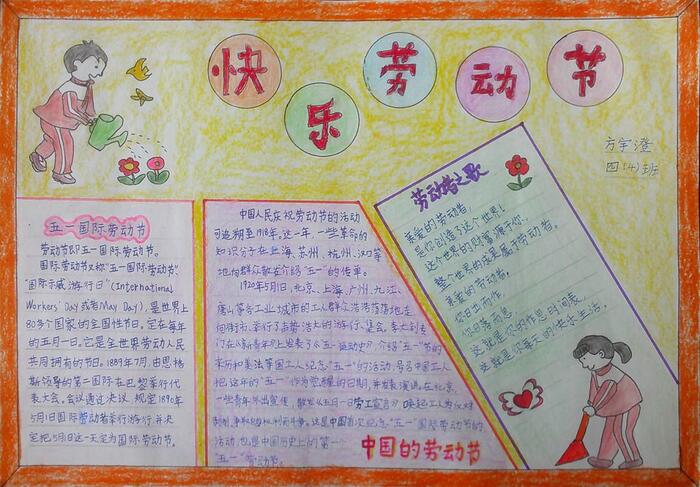 快乐劳动节
方宇澄
四(4)班
五一国际劳动节
劳动节即五一国际劳动节。
国际劳动节又称"五一国际劳动节",
"国际示威游行日"(International
Workers' Day或者May Day),是世界上
80多个国家的全国性节日。定在每年
的五月一日。它是全世界劳动人民
共同拥有的节日。1889年7月,由恩格
斯领导的第二国际在巴黎举行代
表大会。会议通过决议,规定1890年
5月1日国际劳动者举行游行,并决
定把5月1日这一天定为国际劳动节。
中国人民庆祝劳动节的活动
可追溯至1918年。这一年,一些革命的
知识分子在上海、苏州、杭州、汉口等
地向群众散发介绍"五一"的传单。
1920年5月1日,北京、上海、广州、九江、
唐山等各工业城市的工人群众浩浩荡荡地走
向街市、举行了声势浩大的游行、集会。李大钊专
门在《新青年》上发表了《五一运动史》,介绍"五一"节的
来历和美法等国工人纪念"五一"的活动,号召中国工人
把这年的"五一"作为觉醒的日期,
一些青年外出宣传,散发《五月一日劳工宣言》,唤起工人为反对
这是中国首次纪念"五一"国际劳动节的
活动,也是中国历史上的第一
"五一"劳动节。
中国的劳动节
劳动者之歌
亲爱的劳动者,
是你创造了这个世界!
这个世界的财富源于你,
整个世界的成果属于劳动者。
亲爱的劳动者,
你日出而作,
你日落而息,
这就是你的作息时间表,
这就是你每天的快乐生活。